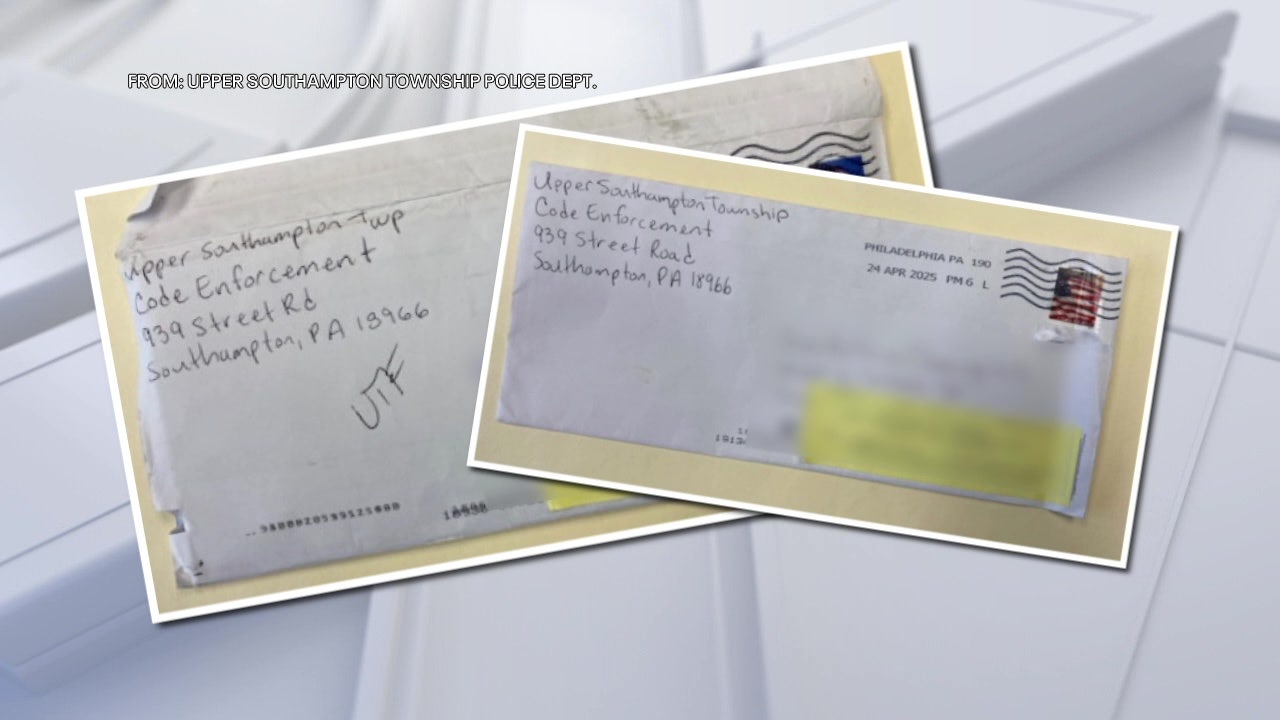 FROM: UPPER SOUTHAMPTON TOWNSHIP POLICE DEPT.
Upper Southampton Twp
Code Enforcement
939 Street Rd
Southampton, PA 18966
UTF
Upper Southampton Township
Code Enforcement
939 Street Road
Southampton, PA 18966
PHILADELPHIA PA 190
24 APR 2025 PM 6 L